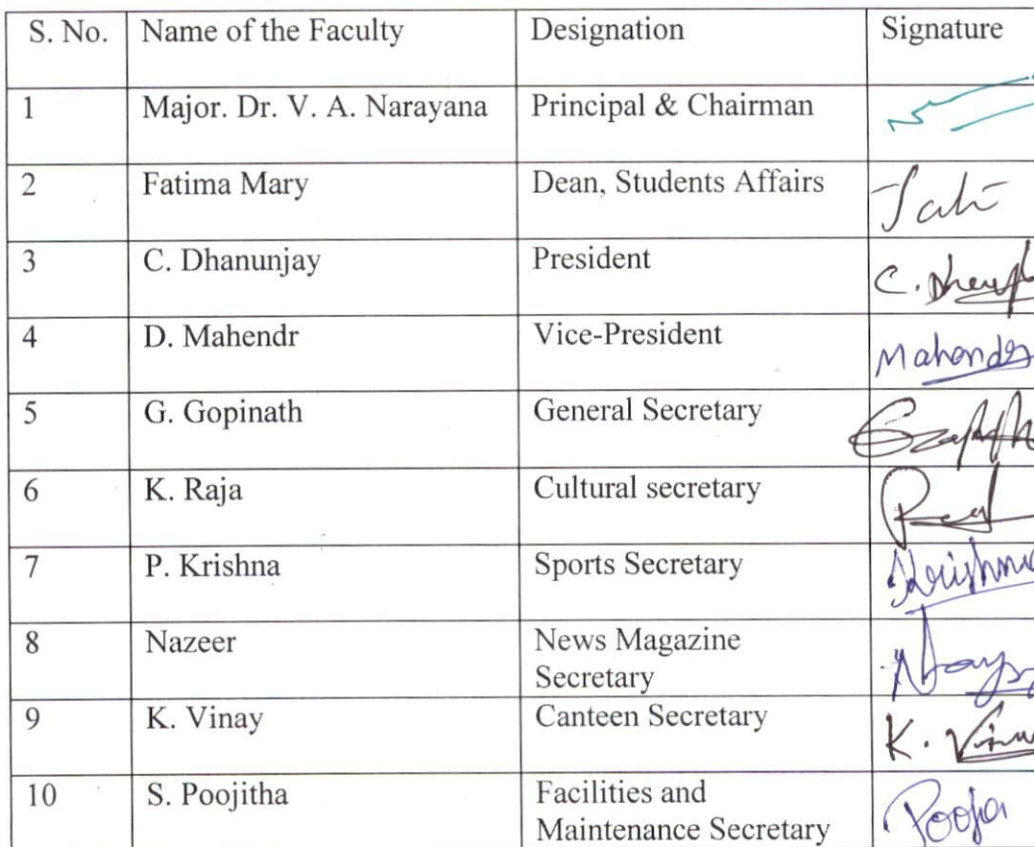 S. No. Name of the Faculty Designation Signature
1 Major. Dr. V. A. Narayana Principal & Chairman
2 Fatima Mary Dean, Students Affairs
3 C. Dhanunjay President
4 D. Mahendr Vice-President
5 G. Gopinath General Secretary
6 K. Raja Cultural secretary
7 P. Krishna Sports Secretary Krishna
8 Nazeer News Magazine
Secretary
9 K. Vinay Canteen Secretary
10 S. Poojitha Facilities and Pooja
Maintenance Secretary